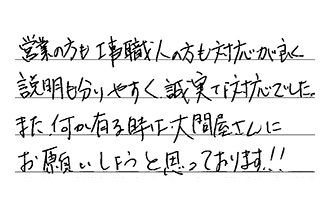 営業の方も工事職人の方も対応が良く
説明も分りやすく誠実な対応でした。
また何か有る時は大問屋さんに
お願いしようと思っております!!